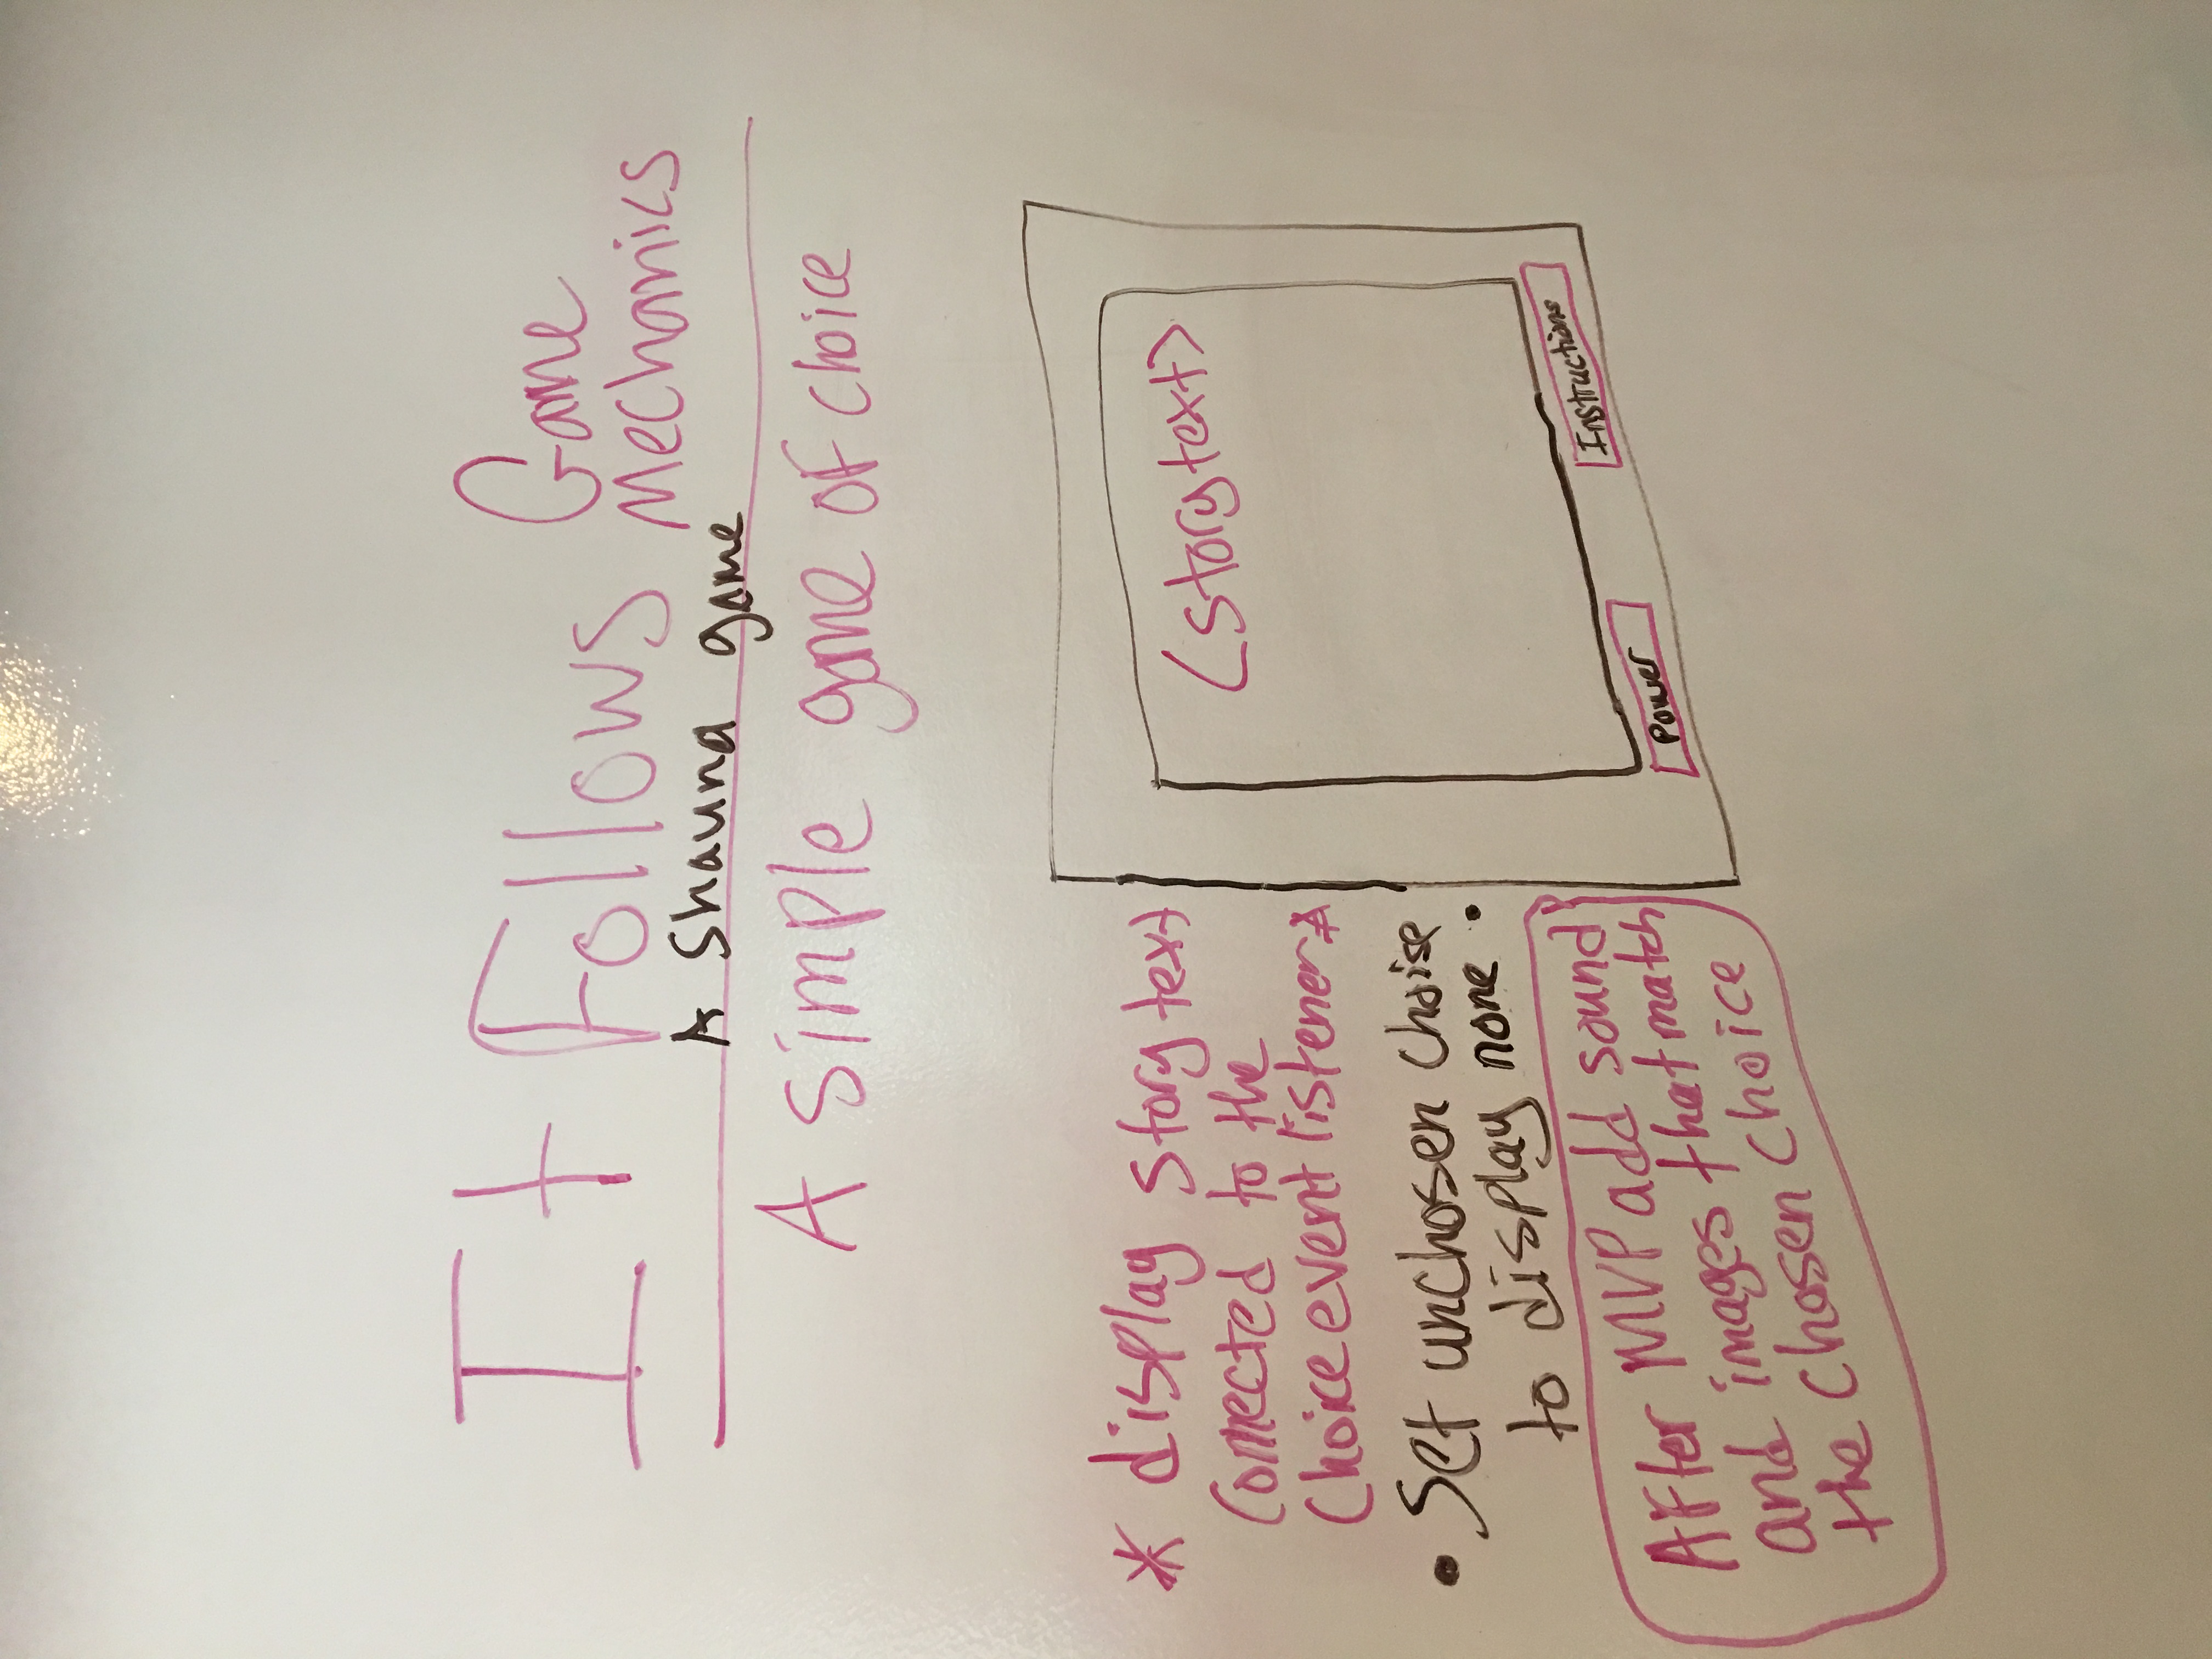 It Follows Game
Mechanics
A Shauna game
A simple game of choice
* display story text
connected to the
choice event listener *
• Set unchosen choise
to display none •
After MVP add sound
and images that match
the chosen choice
<story text>
Instructions
Power